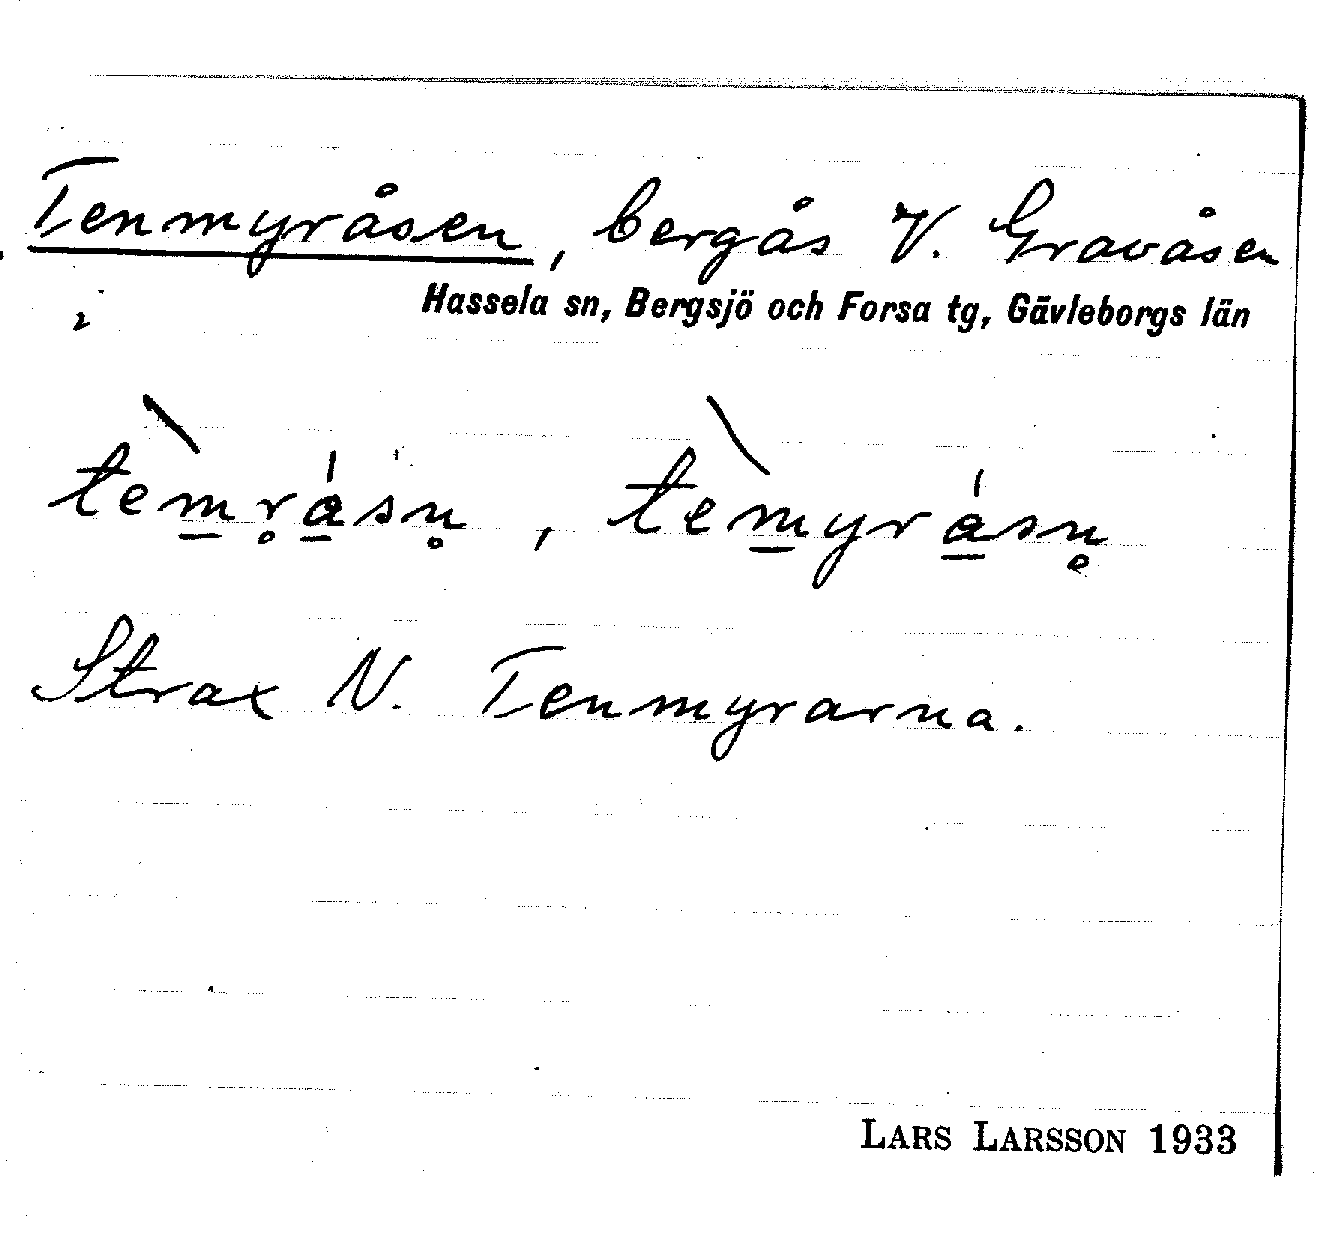 Tenmyråsen, bergås V. Gravåsen
i Hassela sn, Bergsjö och Forsa tg, Gävleborgs län
tèm̲r̥á̲sn̥, tèm̲yrá̲sn̥
Strax N. Tenmyrarna.
LARS LARSSON 1933